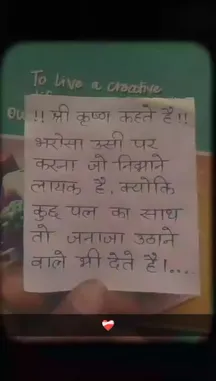 To Live a creative
!! श्री कृष्ण कहते है!!
भरोसा उसी पर
करना जो निभाने
लायक है, क्योकि
कुछ पल का साथ
तो जनाजा उठाने
वाले भी देते है।....